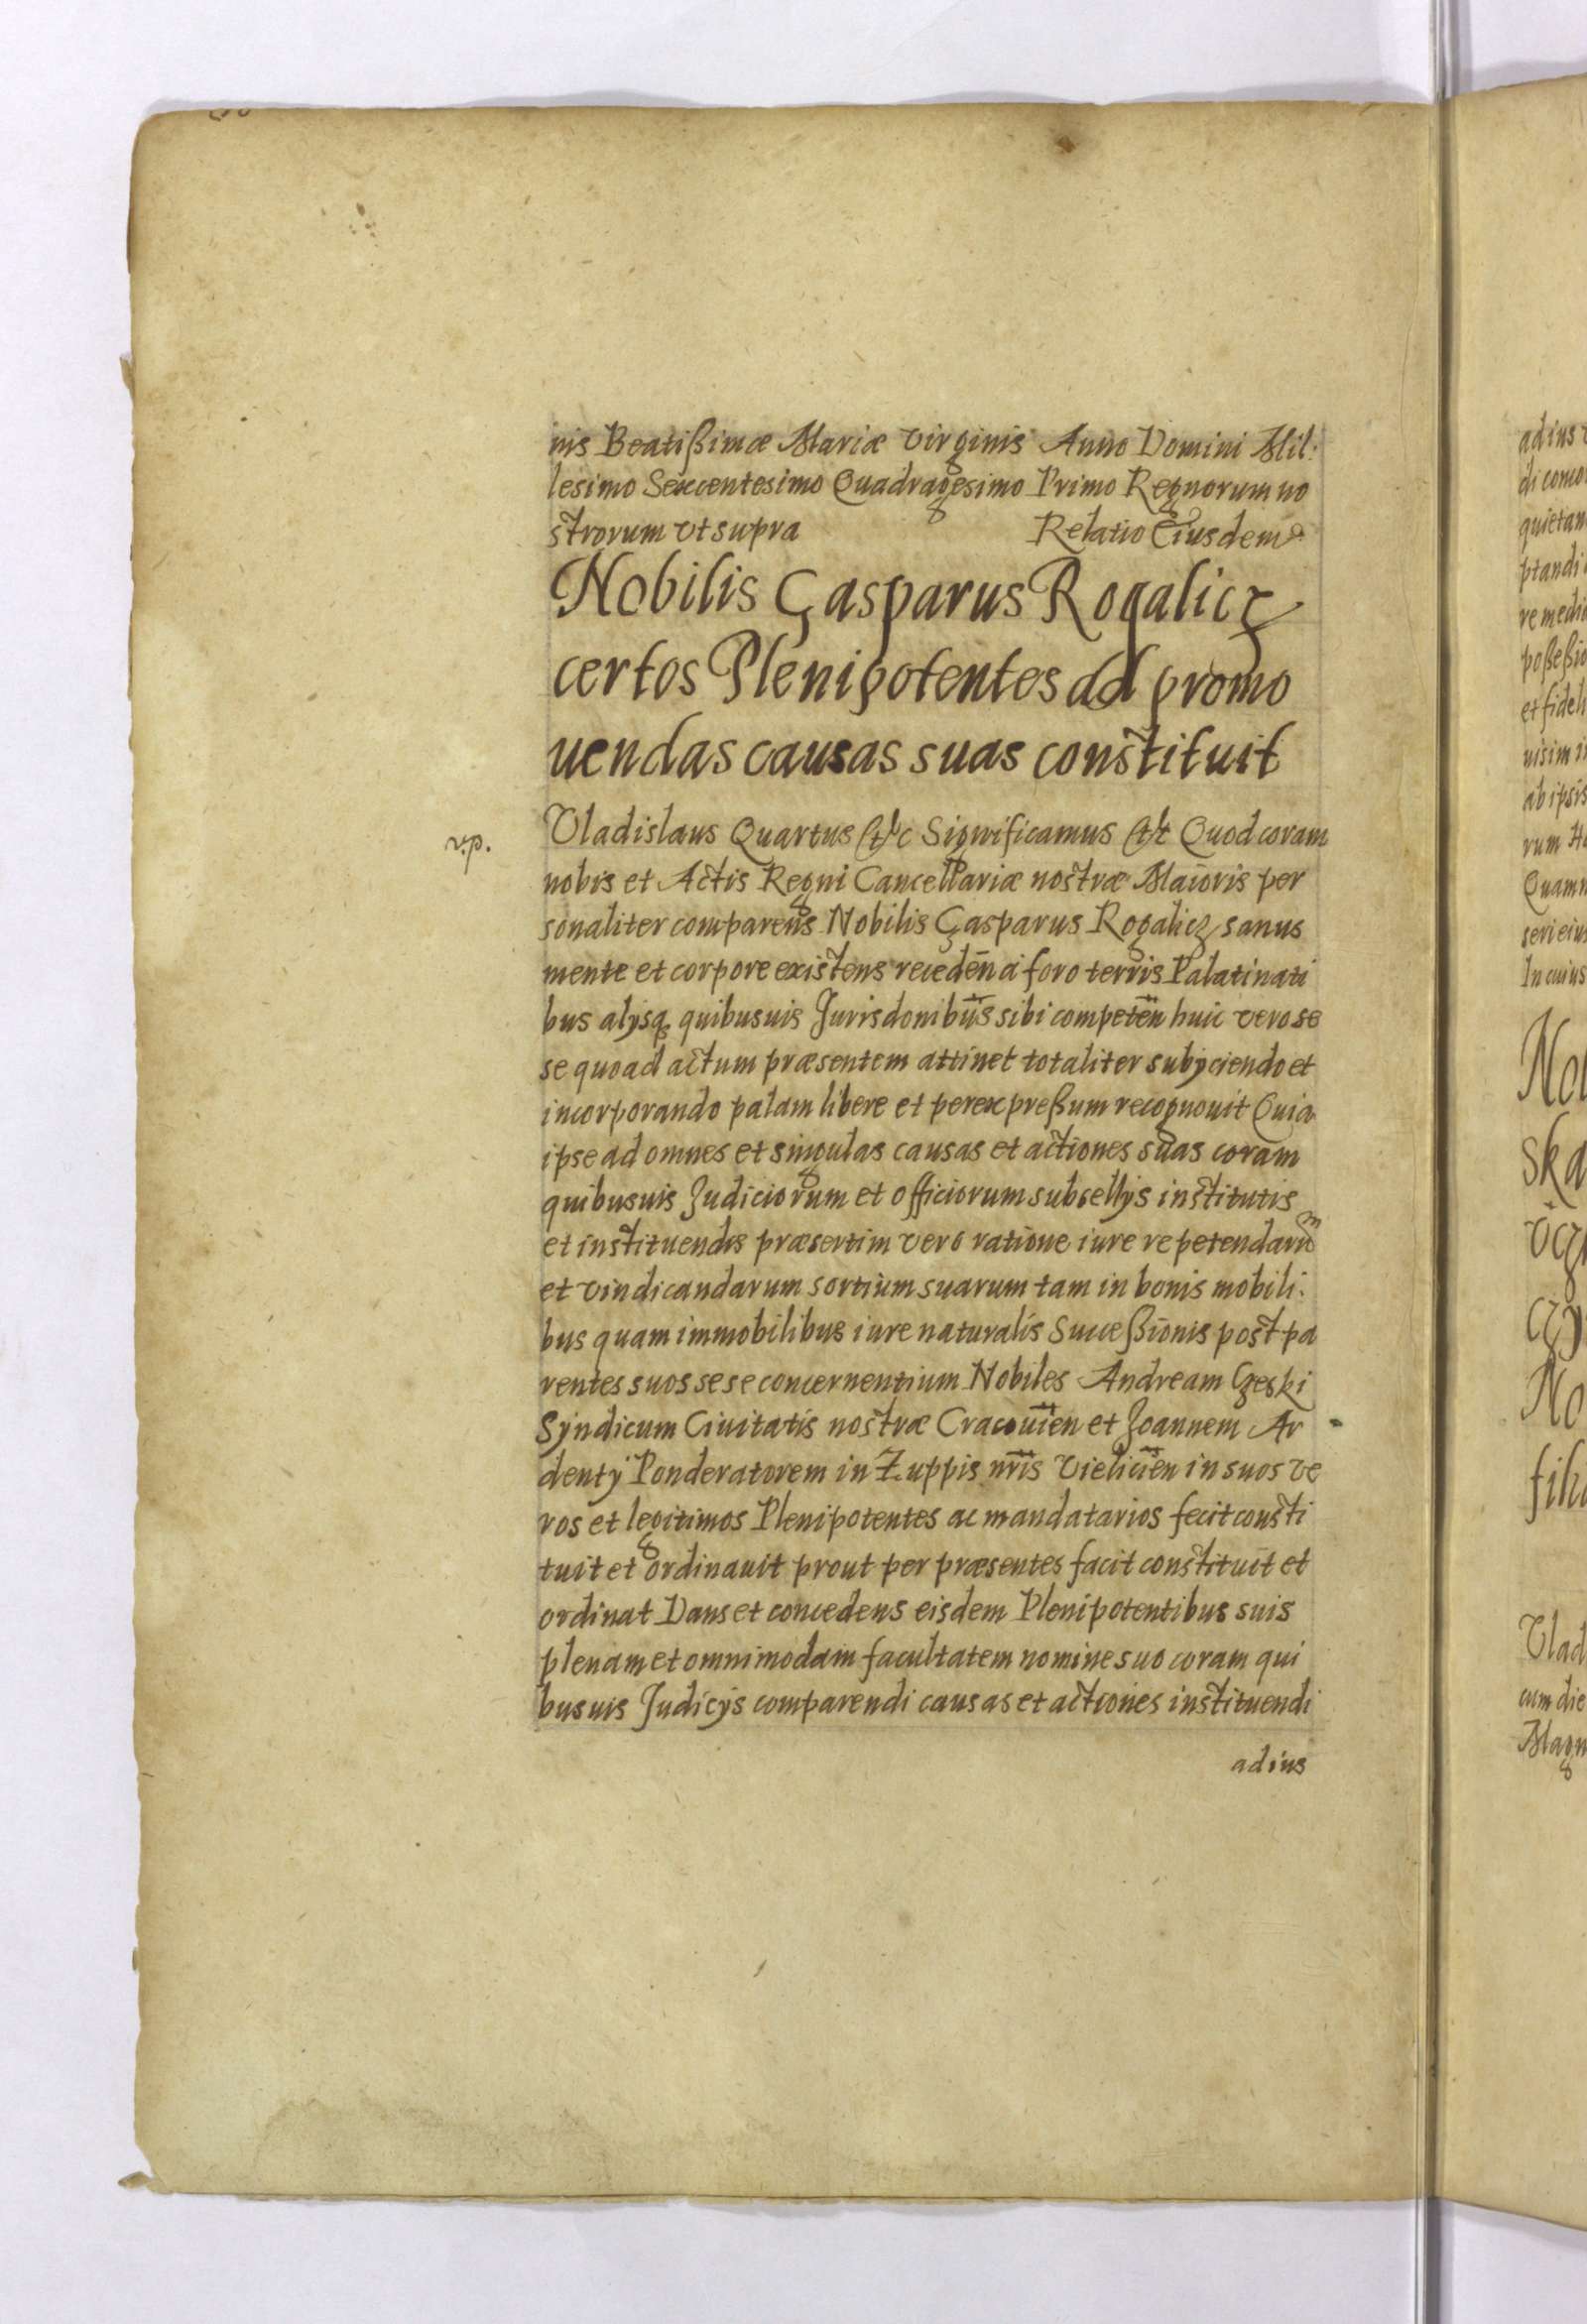 nis Beatißimæ Mariæ Virginis Anno Domini Mil:
lesimo Sexcentesimo Quadragesimo Primo Regnorum no
strorum vt supra Relatio Eiusdem
Nobilis Gasparus Rogalicz
certos Plenipotentes ad promo
uendas causas suas constituit
v.p.
Vladislaus Quartus &c Significamus &c Quod coram
nobis et Actis Regni Cancellariæ nostræ Maioris per
sonaliter comparens Nobilis Gasparus Rogalicz sanus
mente et corpore existens receden̄ a foro terris Palatinati
bus alysq. quibusuis Jurisdonibūs sibi competēn huic vero se
se quoad actum præsentem attinet totaliter subyciendo et
incorporando palam libere et per expreßum recognouit Quia
ipse ad omnes et singulas causas et actiones suas coram
quibusuis Judiciorum et officiorum subsellys institutis
et instituendis præsertim vero ratione iure repetendarum
et vindicandarum sortium suarum tam in bonis mobili:
bus quam immobilibus iure naturalis Succeßionis post pa
rentes suos sese concernentium Nobiles Andream Czeski
Syndicum Ciuitatis nostræ Cracouien̄ et Joannem Ar
denty Ponderatorem in Zuppis nr̄is Vielicien̄ in suos ve
ros et legitimos Plenipotentes ac mandatarios fecit consti
tuit et ordinauit prout per præsentes facit constituit et
ordinat Dans et concedens eisdem Plenipotentibus suis
plenam et omnimodam facultatem nomine suo coram qui
busuis Judicys comparendi causas et actiones instituendi
adius